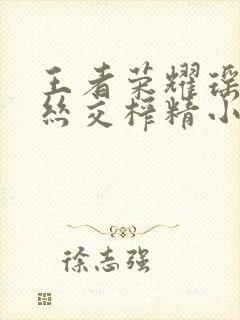 王者荣耀瑶
丝交榨精小
徐志强